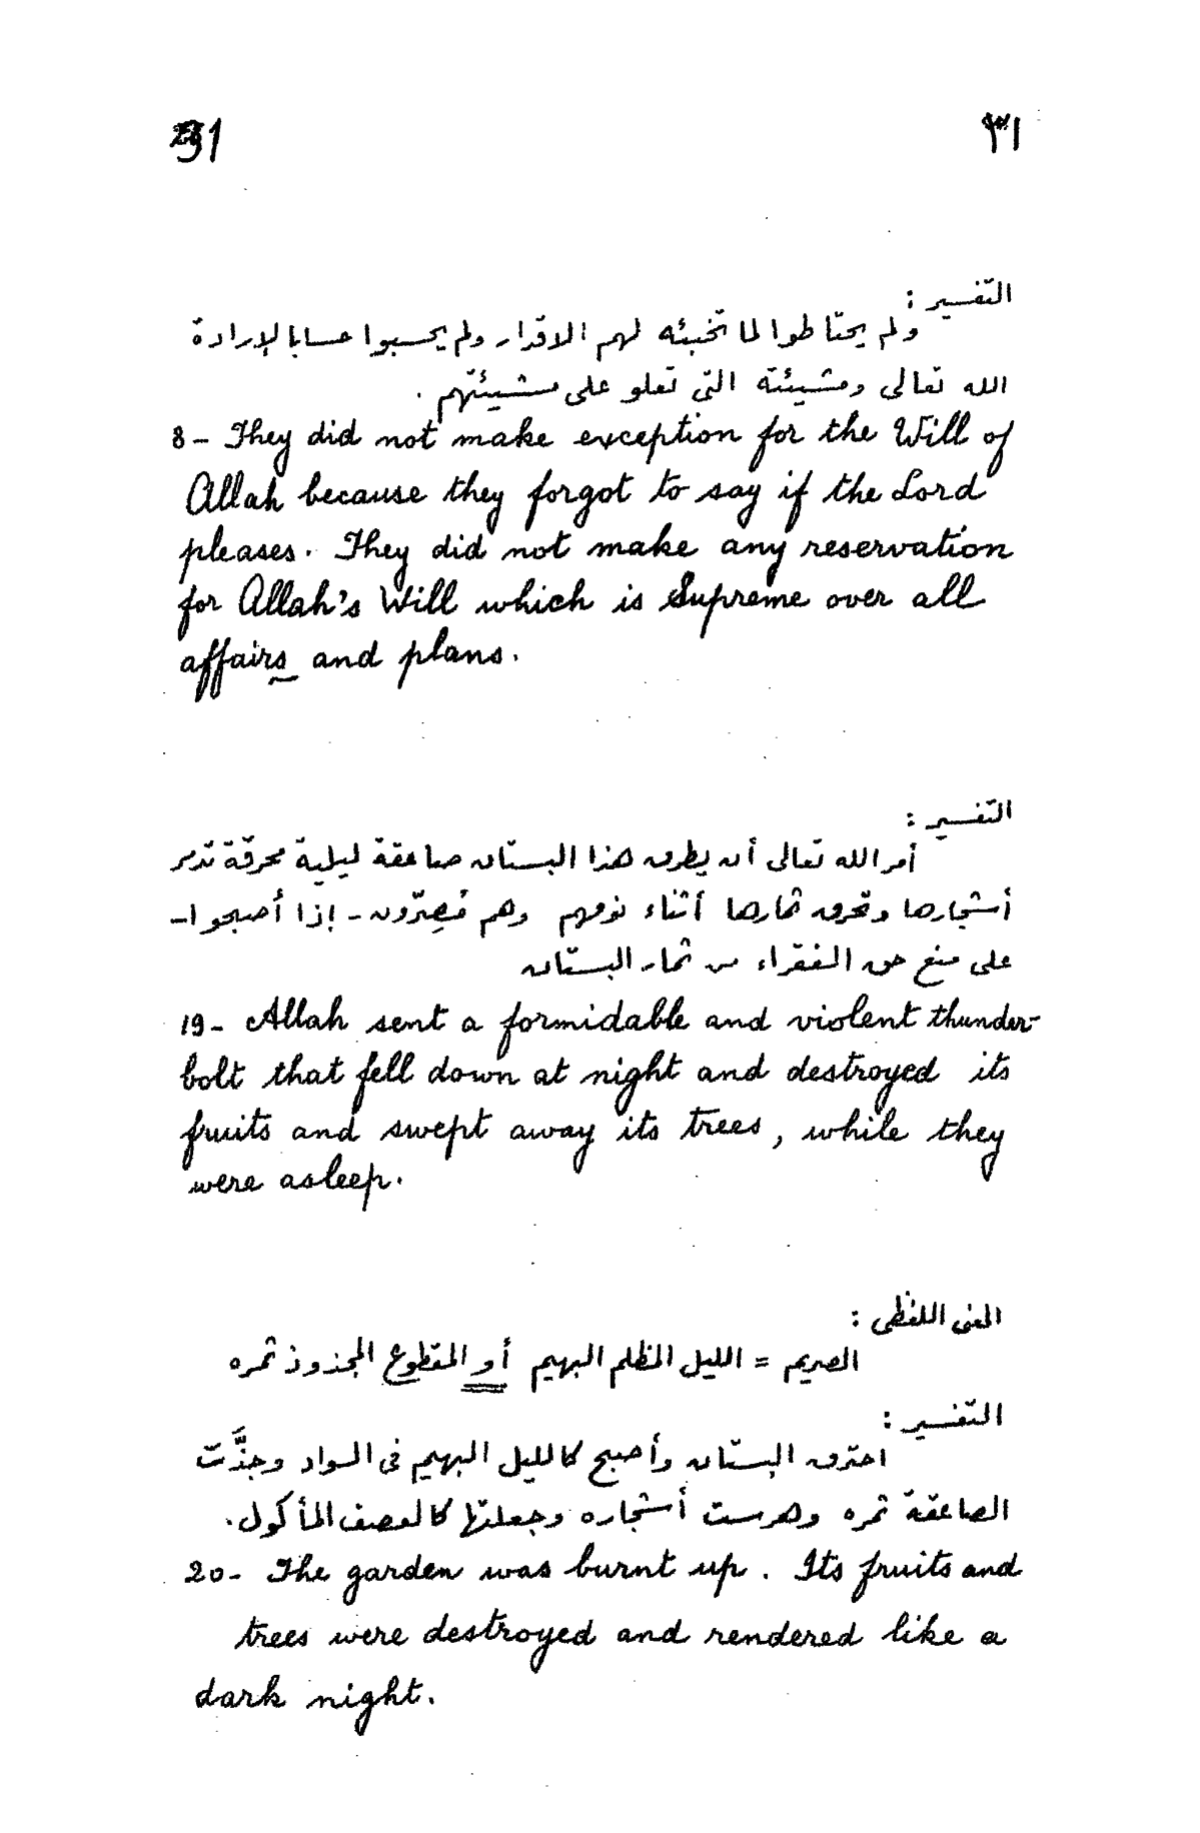 31 ٣١
التفسير :
ولم يحتاطوا لما تخبئه لهم الاقدار ولم يحسبوا حسابا لإرادة
الله تعالى ومشيئته التي تعلو على مشيئتهم .
8 - They did not make exception for the Will of
Allah because they forgot to say if the Lord
pleases. They did not make any reservation
for Allah's Will which is Supreme over all
affairs and plans.
التفسير :
أمر الله تعالى أن يطرق هذا البستان صاعقة ليلية محرقة تدمر
أشجارها وتحرق ثمارها أثناء نومهم وهم مُصِرّون - إذا أصبحوا -
على منع حق الفقراء من ثمار البستان
19 - Allah sent a formidable and violent thunder-
bolt that fell down at night and destroyed its
fruits and swept away its trees, while they
were asleep.
المعنى اللفظي :
الصريم = الليل المظلم البهيم أو المقطوع المجذوذ ثمره
التفسير :
احترق البستان وأصبح كالليل البهيم في السواد وجذَّت
الصاعقة ثمره وهرست أشجاره وجعلتها كالعصف المأكول.
20 - The garden was burnt up. Its fruits and
trees were destroyed and rendered like a
dark night.